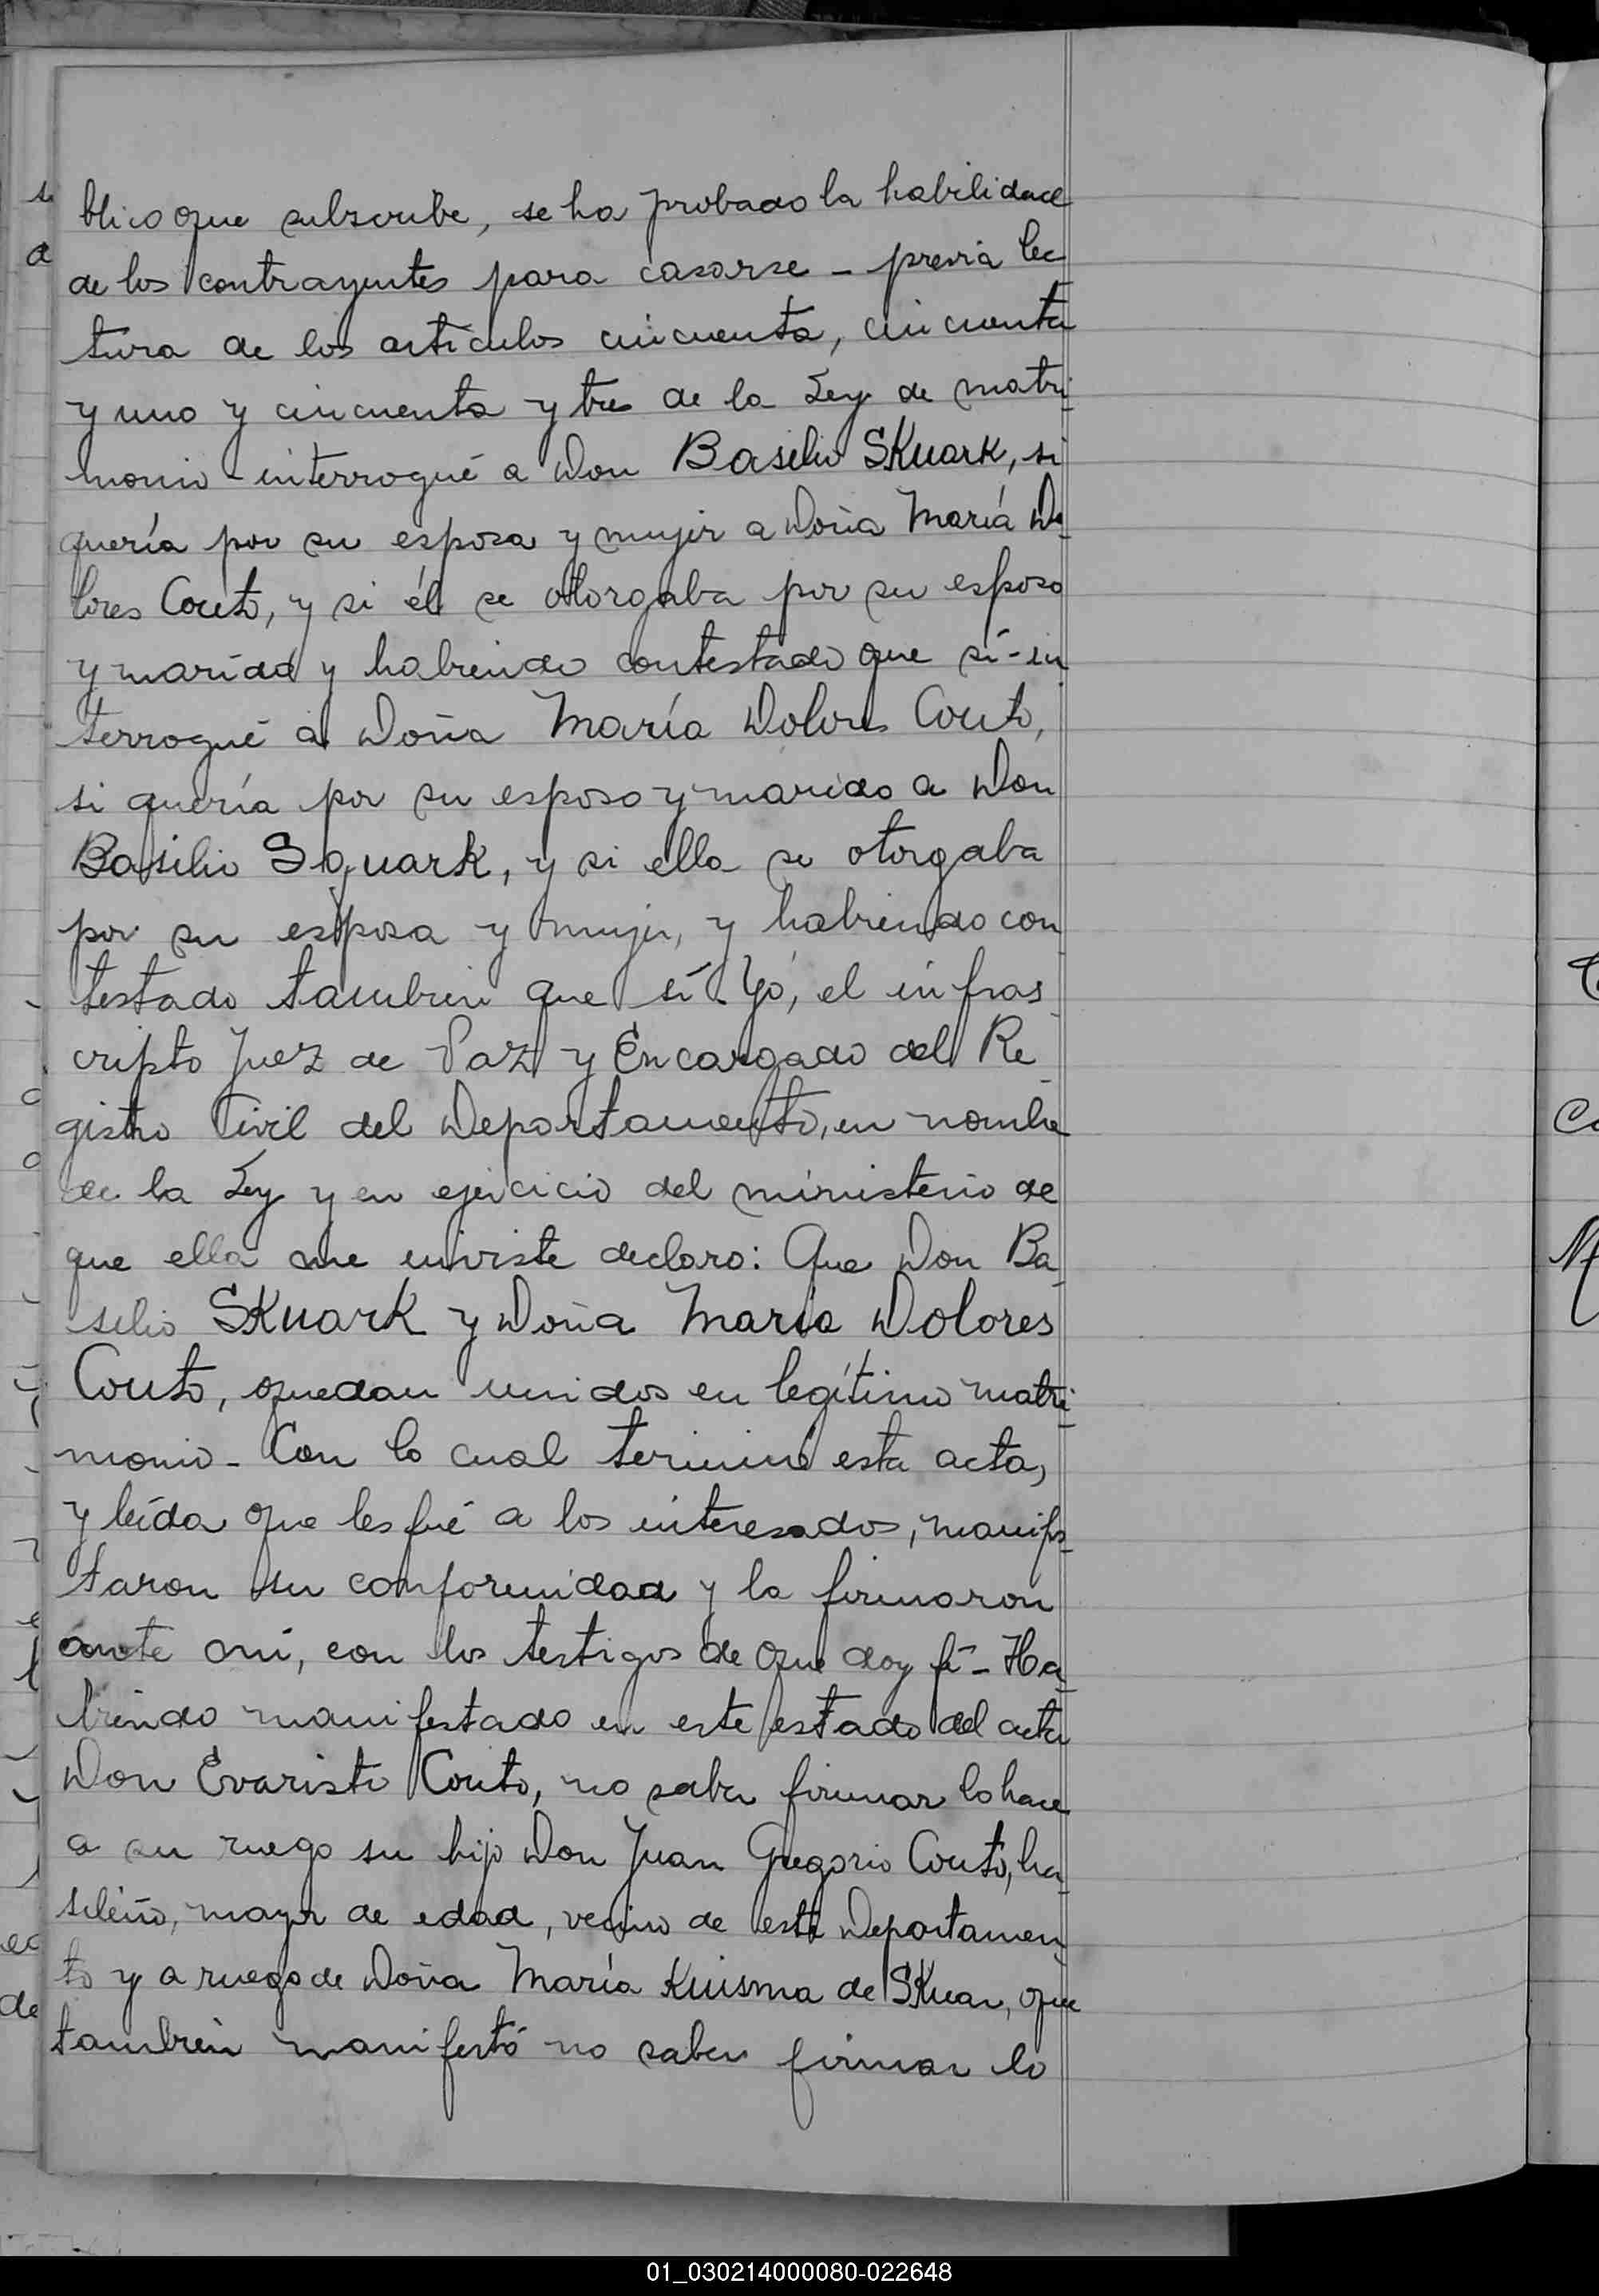 blico que subscribe, se ha probado la habilidad
de los contrayentes para casarse - previa lec
tura de los artículos cincuenta, cincuenta
y uno y cincuenta y tres de la Ley de matri
monio - interrogué a Don Basilio SKuark, si
quería por su esposa y mujer a Doña María Do
lores Couto, y si él se otorgaba por su esposo
y marido y habiendo contestado que sí - in
terrogué a Doña María Dolores Couto,
si quería por su esposo y marido a Don
Basilio Squark, y si ella se otorgaba
por su esposa y mujer, y habiendo con
testado tambien que sí - Yó, el infras
cripto Juez de Paz y Encargado del Re
gistro Civil del Departamento, en nombre
de la Ley y en ejercicio del ministerio de
que ella me inviste declaro: Que Don Ba
silio SKuark y Doña María Dolores
Couto, quedan unidos en legítimo matri
monio - Con lo cual terminó esta acta,
y leída que les fué a los interesados, manifes
taron su conformidad y la firmaron
ante mí, con los testigos de que doy fé - Ha
biendo manifestado en este estado del acta
Don Evaristo Couto, no saber firmar lo hace
a su ruego su hijo Don Juan Gregorio Couto, ha
sileño, mayor de edad, vecino de este Departamen
to y a ruego de Doña María Kuisma de SKuar, que
también manifestó no saber firmar lo
01_030214000080-022648